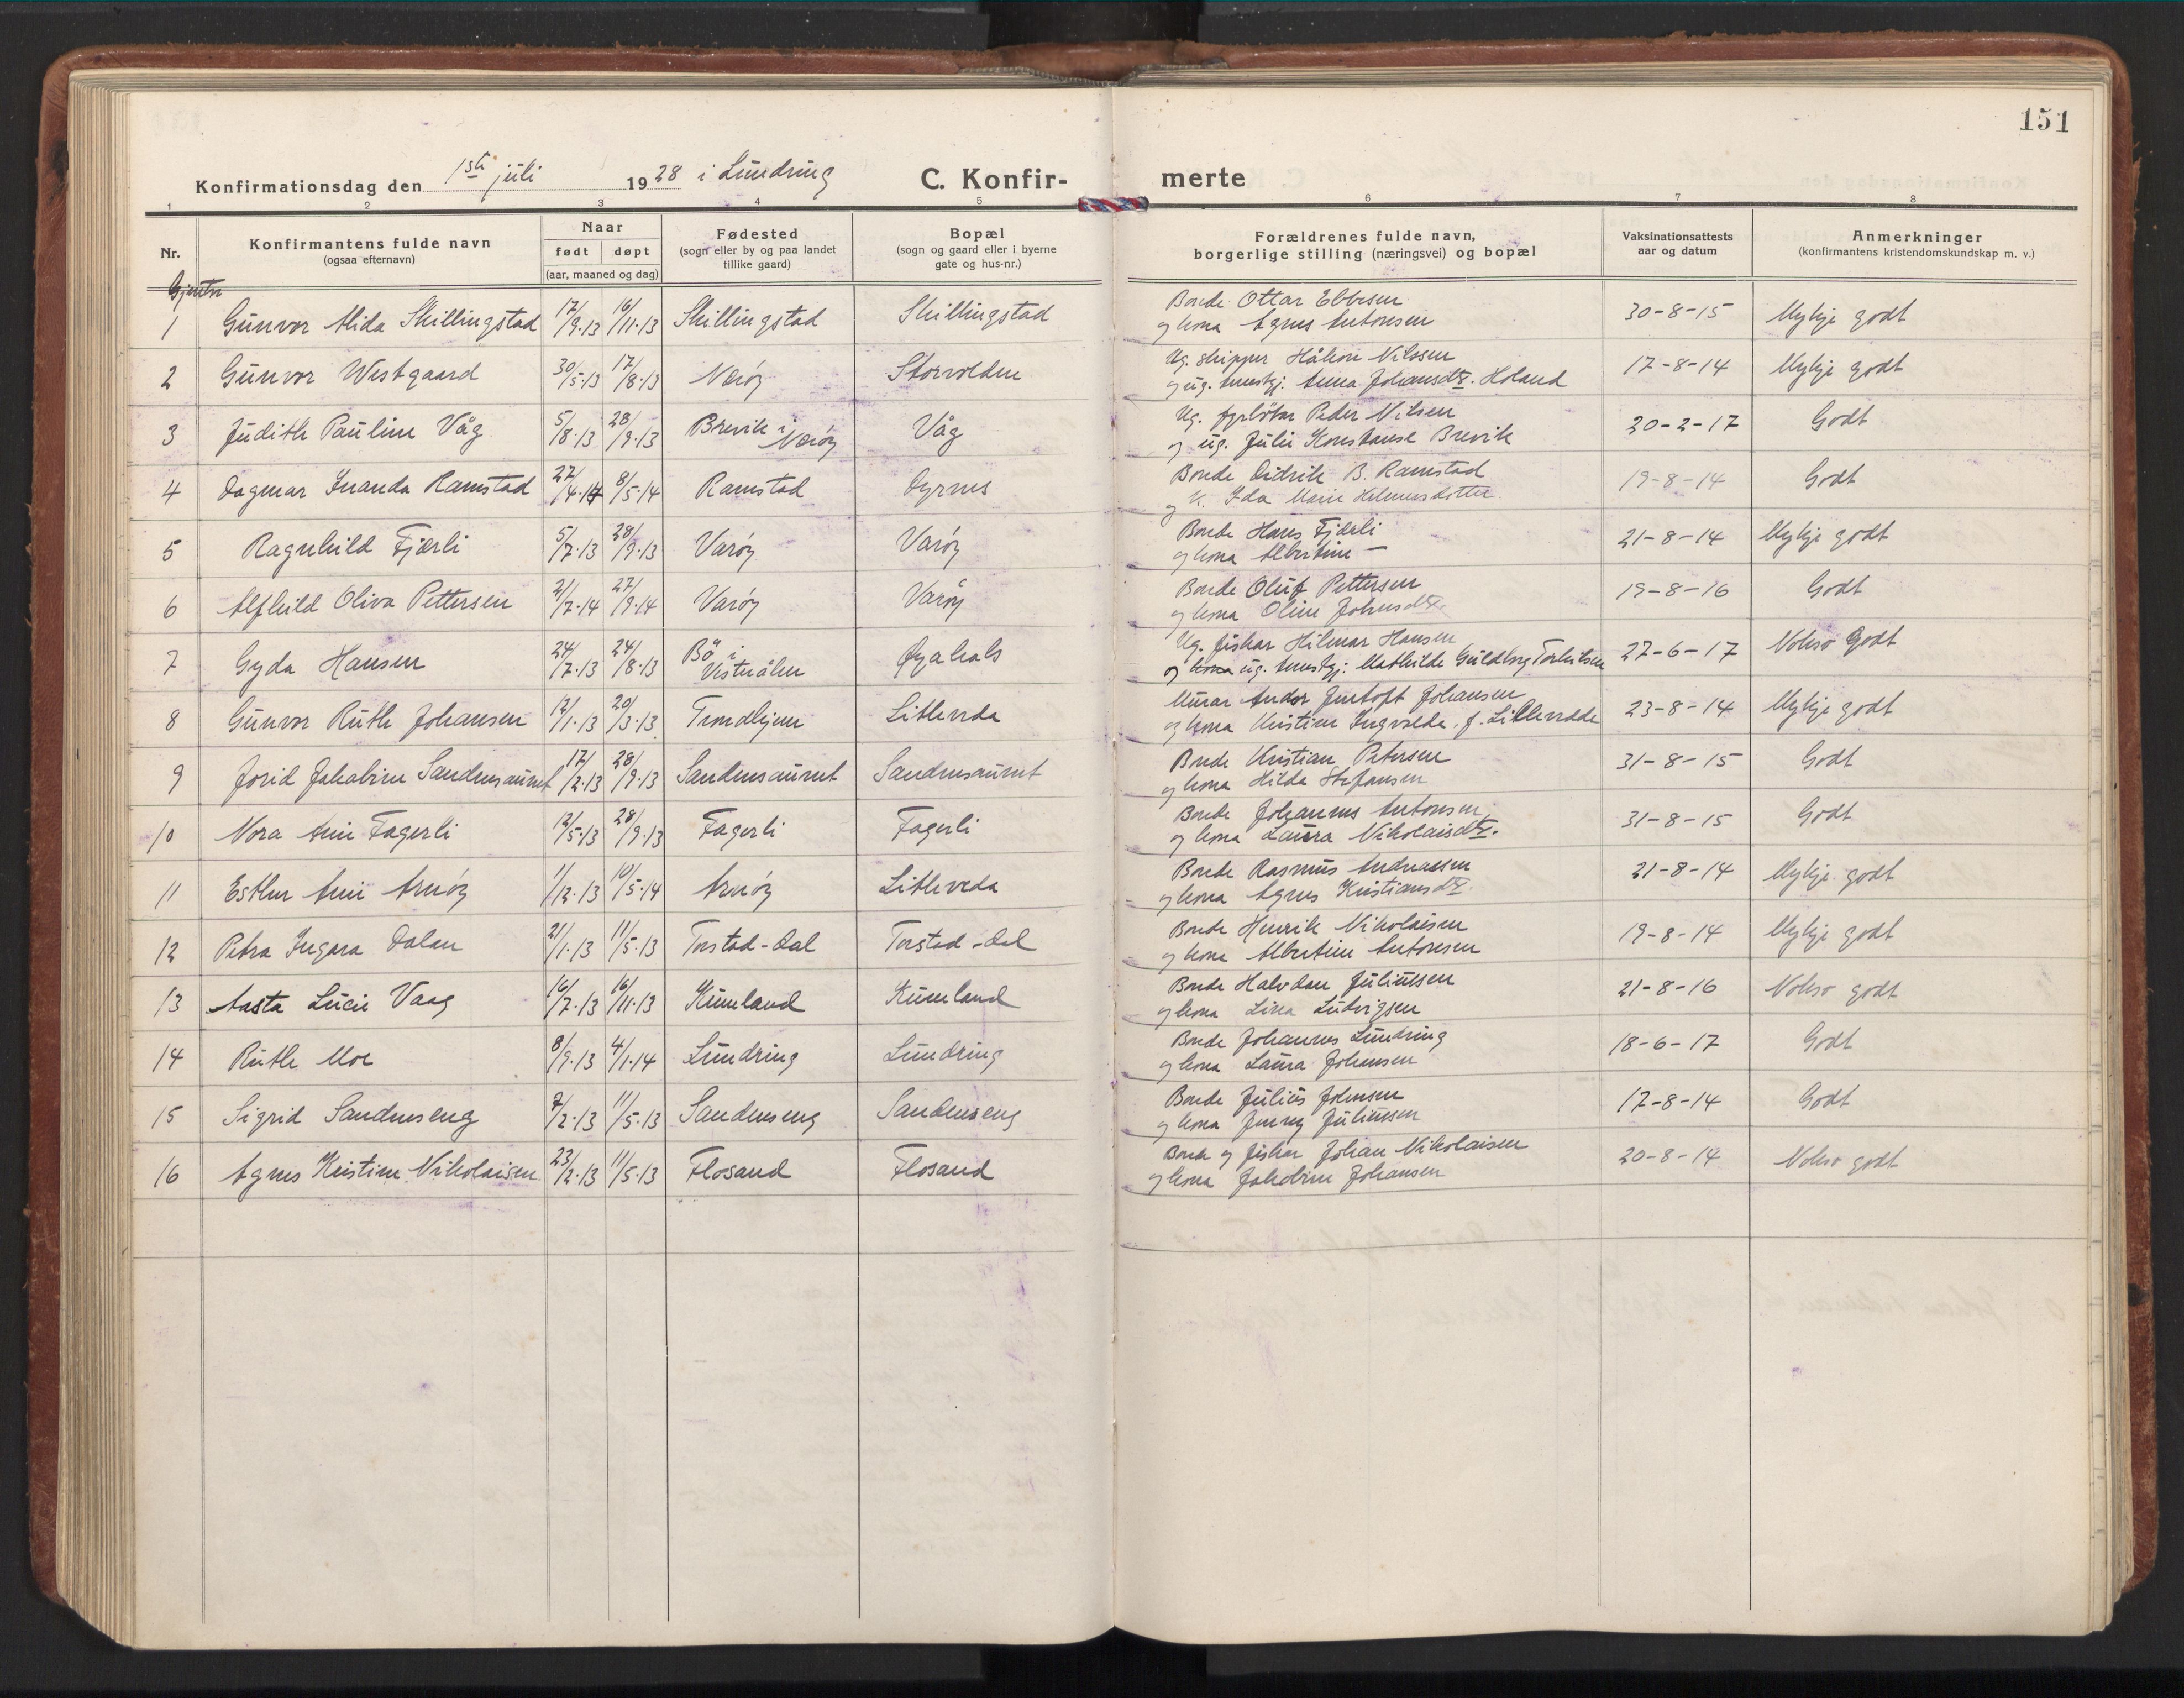 151
Konfirmationsdag den 1ste juli 1928 i Lundring C. Konfir- merte
1 2 3 4 5 6 7 8
Nr. Konfirmantens fulde navn (ogsaa efternavn) Naar født døpt (aar, maaned og dag) Fødested (sogn eller by og paa landet tillike gaard) Bopæl (sogn og gaard eller i byerne gate og hus-nr.) Forældrenes fulde navn, borgerlige stilling (næringsvei) og bopæl Vaksinationsattests aar og datum Anmerkninger (konfirmantens kristendomskundskap m. v.)
Gjenter
1 Gunvor Alida Skillingstad 17/9.13 16/11.13 Skillingstad Skillingstad Bonde Ottar Ebbesen 30-8-15 Mykje godt
og kona Agnes Antonsen
2 Gunvor Westgaard 30/5.13 17/8.13 Nærøy Storvolden Ug. skipper Håkon Nilssen 17-8-14 Mykje godt
og ug. tenestgj. Anna Johansdtr. Holand
3 Judith Pauline Våg 5/8.13 28/9.13 Brevik i Nærøy Våg Ug. Peder Nilsen 20-2-17 Godt
og ug. Julie Konstanse Brevik
4 Dagmar Inanda Ramstad 27/4.14 8/5.14 Ramstad Dyrnes Bonde Didrik B. Ramstad 19-8-14 Godt
og k. Ida Marie Helmersdotter
5 Ragnhild Fjærli 5/7.13 28/9.13 Varøy Varøy Bonde Hans Fjærli 21-8-14 Mykje godt
og kona Albertine —
6 Alfhild Oliva Pettersen 21/7.14 27/9.14 Varøy Varøy Bonde Oluf Pettersen 19-8-16 Godt
og kona Oline Johnsdtr.
7 Gyda Hansen 24/7.13 24/8.13 Bö i Vesterålen Øyahals Ug. fiskar Hilmar Hansen 27-6-17 Nokso Godt
og kona ug. tenestgj. Mathilde Guldborg Torkilsen
8 Gunvor Ruth Johansen 12/1.13 20/3.13 Trondhjem Litleveda Murar Andor Jentoft Johansen 23-8-14 Mykje godt
og kona Kristine Ingvalda, f. Litlevedde
9 Jorid Jakobine Sandnesaunet 17/2.13 28/9.13 Sandnesaunet Sandnesaunet Bonde Kristian Petersen 31-8-15 Godt
og kona Hilda Stefansen
10 Nora Ani Fagerli 12/5.13 28/9.13 Fagerli Fagerli Bonde Johannes Antonsen 31-8-15 Godt
og kona Laura Nikolaisdtr.
11 Esther Ani Arnöy 1/12.13 10/5.14 Arnöy Litleveda Bonde Rasmus Andreassen 21-8-14 Mykje godt
og kona Agnes Kristiansdtr.
12 Petra Ingara Dalan 21/1.13 11/5.13 Torstad-Dal Torstad-Dal Bonde Henrik Nikolaisen 19-8-14 Mykje godt
og kona Albertine Antonsen
13 Aasta Lucie Vaag 16/7.13 16/11.13 Kumland Kumland Bonde Halvdan Juliussen 21-8-16 Nokso godt
og kona Lina Ludvigsen
14 Ruth Moe 8/9.13 4/1.14 Lundring Lundring Bonde Johannes Lundring 18-6-17 Godt
og kona Laura Johansen
15 Sigrid Sandneseng 7/2.13 11/5.13 Sandneseng Sandneseng Bonde Julius Johnsen 17-8-14 Godt
og kona Jenny Juliussen
16 Agnes Kristine Nikolaisen 23/2.13 11/5.13 Flosand Flosand Bonde og fiskar Johan Nikolaisen 20-8-14 Nokso godt
og kona Jakobine Johansen